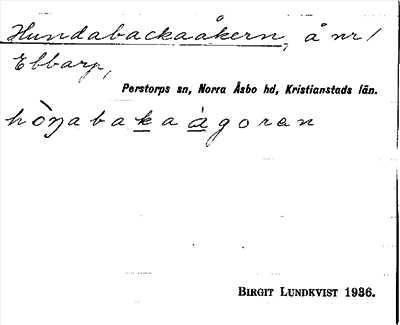 Hundabackaåkern, å nr 1
Ebbarp,
Perstorps sn, Norra Åsbo hd, Kristianstads län.
hòŋabakaàgoran
BIRGIT LUNDKVIST 1936.